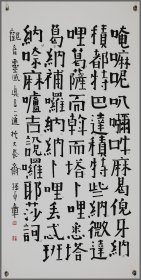 唵嘛呢叭彌吽麻葛倪牙納
積都特巴達積特些納微達
哩葛薩而斡而塔卜哩悉塔
葛納補囉納納卜哩丟忒班
納唵麻嚧吉說囉耶莎訶
觀音靈感真言